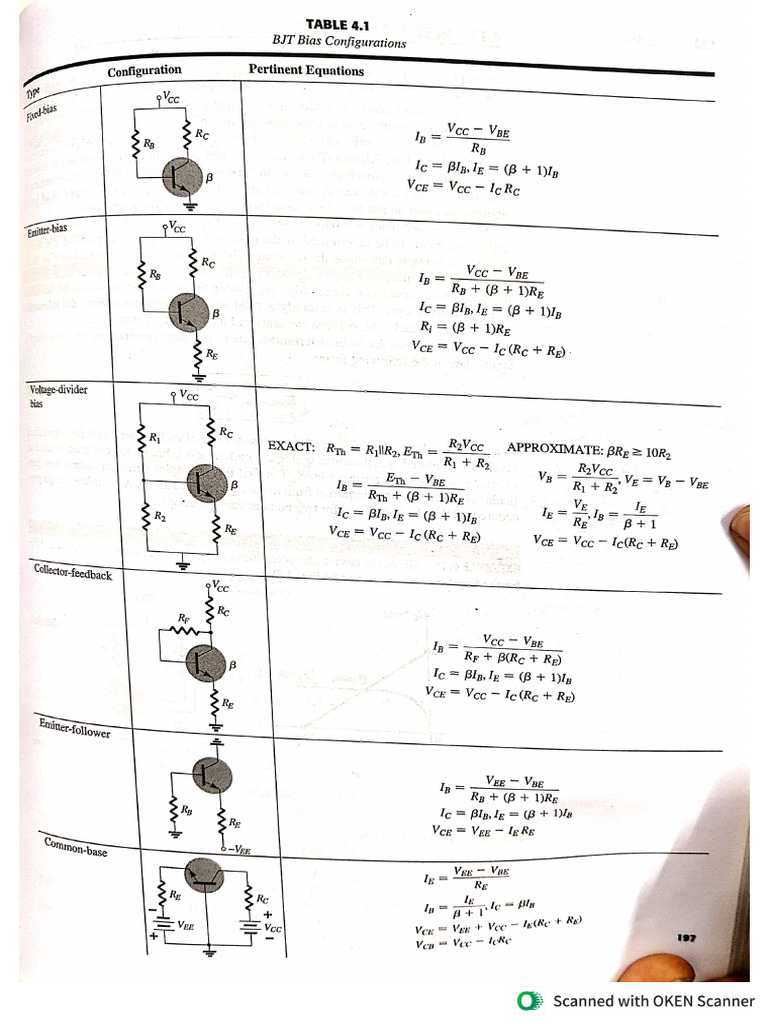 TABLE 4.1
BJT Bias Configurations
Type Configuration Pertinent Equations
Fixed-bias
VCC
RB
RC
β
IB = (VCC − VBE) / RB
IC = βIB, IE = (β + 1)IB
VCE = VCC − ICRC
Emitter-bias
VCC
RB
RC
β
RE
IB = (VCC − VBE) / (RB + (β + 1)RE)
IC = βIB, IE = (β + 1)IB
Ri = (β + 1)RE
VCE = VCC − IC(RC + RE)
Voltage-divider
bias
VCC
R1
RC
β
R2
RE
EXACT: RTh = R1||R2, ETh = R2VCC / (R1 + R2)
IB = (ETh − VBE) / (RTh + (β + 1)RE)
IC = βIB, IE = (β + 1)IB
VCE = VCC − IC(RC + RE)
APPROXIMATE: βRE ≥ 10R2
VB = R2VCC / (R1 + R2), VE = VB − VBE
IE = VE / RE, IB = IE / (β + 1)
VCE = VCC − IC(RC + RE)
Collector-feedback
VCC
RF
RC
β
RE
IB = (VCC − VBE) / (RF + β(RC + RE))
IC = βIB, IE = (β + 1)IB
VCE = VCC − IC(RC + RE)
Emitter-follower
RB
RE
−VEE
IB = (VEE − VBE) / (RB + (β + 1)RE)
IC = βIB, IE = (β + 1)IB
VCE = VEE − IERE
Common-base
RE
RC
VEE
VCC
− +
+ −
IE = (VEE − VBE) / RE
IB = IE / (β + 1), IC = βIB
VCE = VEE + VCC − IE(RC + RE)
VCB = VCC − ICRC
197
Scanned with OKEN Scanner